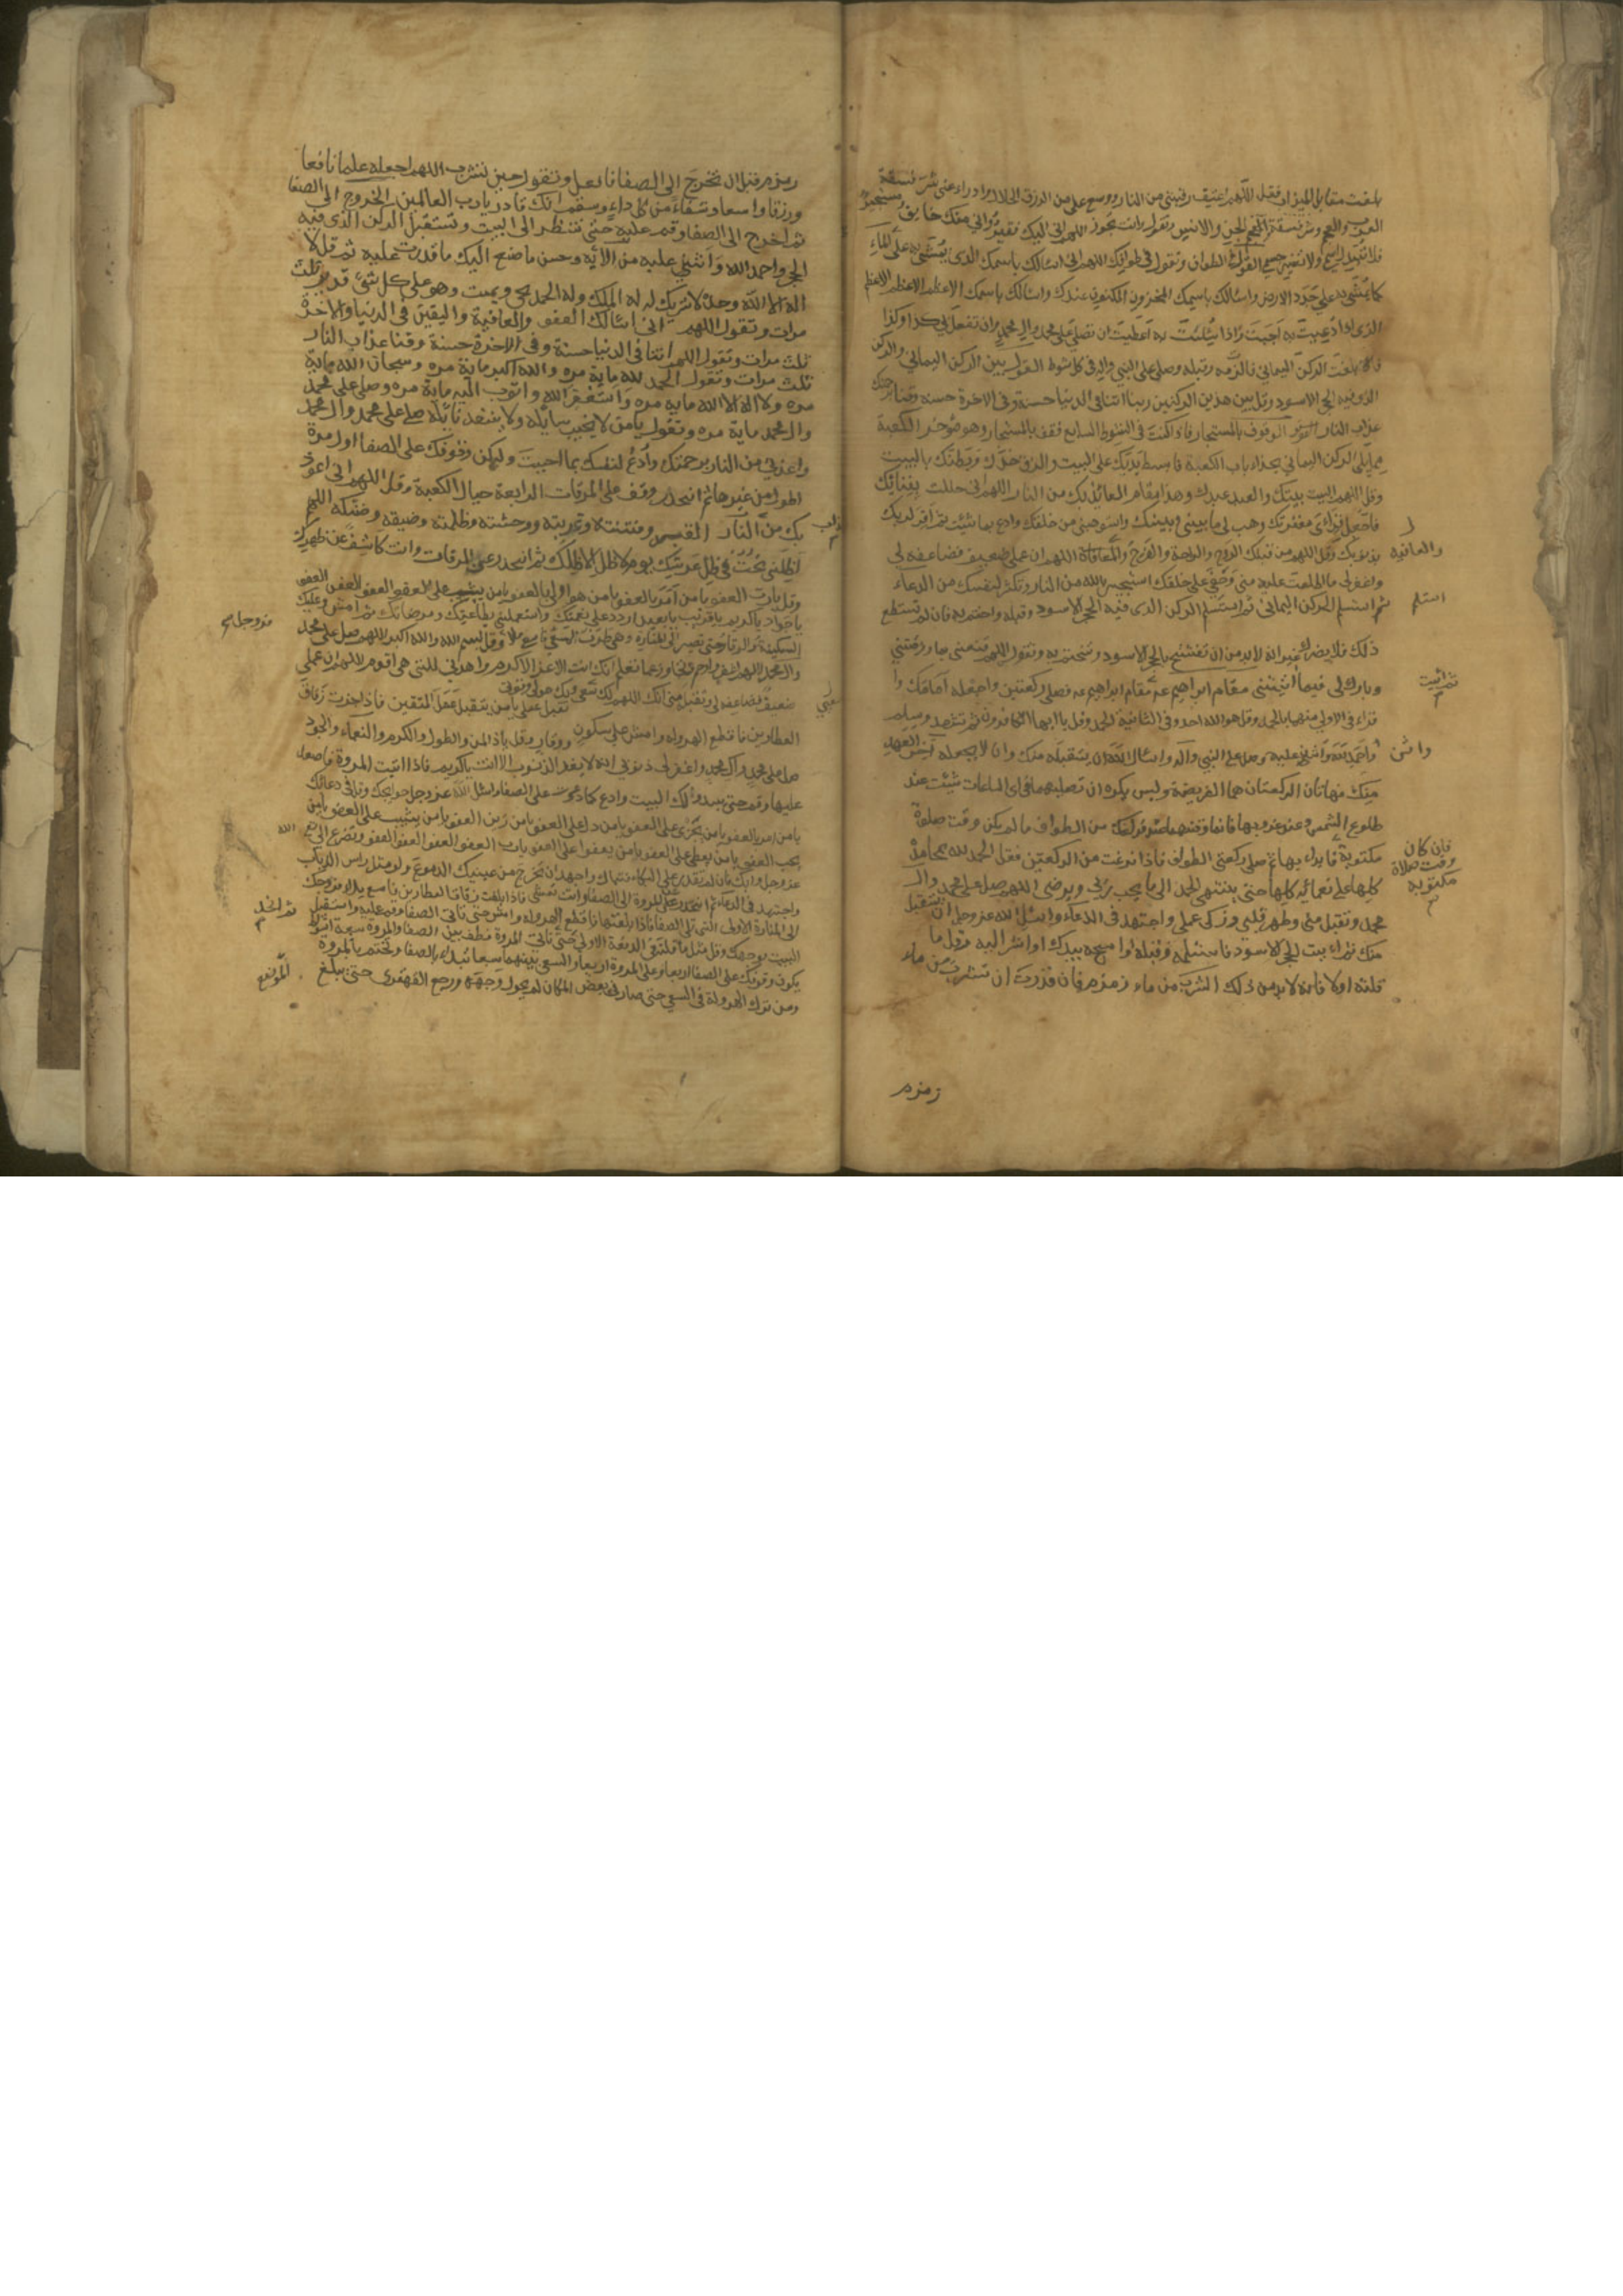 بلغت مقابل الميزاب فقل اللهم اعتق رقبتي من النار ووسع علي من الرزق الحلال وادراء عني شر فسقة
العرب والعجم وشر فسقة الجن والانس وتقول وانت تجوز اللهم اني اليك فقير واني منك خايف مستجير
فلا تبدل اسمي ولا تغير جسمي القول في الطواف وتقول في طوافك اللهم اني اسالك باسمك الذي يمشى به على الماء
كما يمشى به على جدد الارض واسالك باسمك المخزون المكنون عندك واسالك باسمك الاعظم الاعظم الاعظم
الذي اذا دعيت به اجبت واذا سئلت به اعطيت ان تصلي على محمد وال محمد وان تفعل بي كذا وكذا
فاذا بلغت الركن اليماني فالتزمه وقبله وصل على النبي واله في كل شوط القول بين الركن اليماني والركن
الذي فيه الحجر الاسود وقل بين هذين الركنين ربنا اتنا في الدنيا حسنة وفي الاخرة حسنة وقنا برحمتك
عذاب النار الوقوف بالمستجار فاذا كنت في الشوط السابع فقف بالمستجار وهو مؤخر الكعبة
مما يلي الركن اليماني بحذاء باب الكعبة فابسط يديك على البيت والزق خدك وبطنك بالبيت
وقل اللهم البيت بيتك والعبد عبدك وهذا مقام العائذ بك من النار اللهم اني حللت بفنائك
فاجعل قراي مغفرتك وهب لي ما بيني وبينك واستوهبني من خلقك وادع بما شئت ثم اقر لربك
بذنوبك وقل اللهم من قبلك الروح والراحة والفرج والمعافاة اللهم ان عملي ضعيف فضاعفه لي
والعافيه
واغفر لي ما اطلعت عليه مني وخفي على خلقك استجير بالله من النار وتكثر لنفسك من الدعاء
ثم استسلم الركن اليماني ثم استلم الركن الذي فيه الحجر الاسود وقبله واختم به فان لم تستطع
استلم
ذلك فلا يضرك غير انه لابد من ان تفتتح بالحجر الاسود وتختم به وتقول اللهم قنعني بما رزقتني
وبارك لي فيما اتيتني مقام ابراهيم ع مقام ابراهيم ع فصل ركعتين واجعله امامك وا
ثم ائت
قراء في الاولى منهما بالحمد وقل هو الله احد وفي الثانية الحمد وقل يا ايها الكافرون ثم تشهد وسلم
واحمد الله واثني عليه وصل على النبي واله واسال الله ان يتقبله منك وان لا يجعله اخر العهد
واثن
منك فهاتان الركعتان هما الفريضة وليس يكره ان تصليهما في اي الساعات شئت عند
طلوع الشمس وعند غروبها فانما وقتهما عند فراغك من الطواف ما لم يكن وقت صلوة
مكتوبة فابداء بها ثم صل ركعتي الطواف فاذا فرغت من الركعتين فقل الحمد لله بمحامده
فان كان
وقت صلاة
مكتوبه
كلها على نعمائه كلها حتى ينتهي الحمد الى ما يحب ربي ويرضى اللهم صل على محمد وال
محمد وتقبل مني وطهر قلبي وزك عملي واجتهد في الدعاء واسئل الله عز وجل ان يتقبل
منك ثم ائت الحجر الاسود فاستلمه وقبله او امسحه بيدك او اشر اليه وقل ما
قلته اولا فانه لابد من ذلك الشرب من ماء زمزم فان قدرت ان تشرب من ماء
زمزم
زمزم قبل ان تخرج الى الصفا فافعل وتقول حين تشرب اللهم اجعله علما نافعا
ورزقا واسعا وشفاء من كل داء وسقم انك قادر يا رب العالمين الخروج الى الصفا
ثم اخرج الى الصفا وقم عليه حتى تنظر الى البيت وتستقبل الركن الذي فيه
الحجر واحمد الله واثني عليه من الآيه وحسن ما صنع اليك ما قدرت عليه ثم قل لا
اله الا الله وحده لا شريك له له الملك وله الحمد يحيي ويميت وهو على كل شيء قدير ثلث
مرات وتقول اللهم اني اسالك العفو والعافية واليقين في الدنيا والاخرة
ثلث مرات وتقول اللهم اتنا في الدنيا حسنة وفي الاخرة حسنة وقنا عذاب النار
ثلث مرات وتقول الحمد لله ماية مره والله اكبر ماية مره وسبحان الله ماية
مره ولا اله الا الله مايه مره واستغفر الله واتوب اليه ماية مره وصل على محمد
وال محمد ماية مره وتقول يا من لا يخيب سايله ولا ينفد نايله صل على محمد وال محمد
واعذني من النار برحمتك وادع لنفسك بما احببت وليكن وقوفك على الصفا اول مرة
اطول من غيرها ثم انحدر وقف على المرقات الرابعة حيال الكعبة وقل اللهم اني اعوذ
بك من النار القبر وفتنته وغربته ووحشته وظلمته وضيقه وضنكه اللهم
عذاب
اظلني تحت في ظل عرشك يوم لا ظل الا ظلك ثم انحدر عن المرقات وانت كاشف عن ظهرك
وقل يا رب العفو يا من امر بالعفو يا من هو اولى بالعفو يا من يثيب على العفو العفو العفو العفو
يا جواد يا كريم يا قريب يا بعيد اردد علي نعمتك واستعملني بطاعتك ومرضاتك ثم امش وعليك
السكينة والوقار حتى تصير الى المنارة وهي طرف السعي فاسع ملا وقل بسم الله والله اكبر اللهم صل على محمد
وال محمد اللهم اغفر وارحم وتجاوز عما تعلم انك انت الاعز الاكرم واهدني للتي هي اقوم اللهم ان عملي
ضعيف فضاعفه لي وتقبل مني انك اللهم لك سعيي وبك حولي وقوتي
سعيي
تقبل عملي يا من يتقبل عمل المتقين فاذا جزت زقاق
العطارين فاقطع الهروله وامش على سكون ووقار وقل يا ذا المن والطول والكرم والنعماء والجود
صل على محمد وال محمد واغفر لي ذنوبي انه لا يغفر الذنوب الا انت يا كريم فاذا اتيت المروة فاصعد
عليها وقم حتى يبدو لك البيت وادع كما دعوت على الصفا واسئل الله عز وجل حوايجك وقل في دعائك
يا من امر بالعفو يا من يجزى على العفو يا من دل على العفو يا من زين العفو يا من يثيب على العفو يا من
يحب العفو يا من يعطي على العفو يا من يعفوا على العفو يا رب العفو العفو العفو العفو وتضرع الى
الله
عز وجل وابك فان لم تقدر على البكاء فتباك واجهد ان تخرج من عينيك الدموع ولو مثل راس الذباب
واجتهد في الدعاء ثم انحدر عن المروة الى الصفا وانت تمشي فاذا بلغت زقاق العطارين فاسع ملا فروجك
الى المنارة الاولى التي تلي الصفا فاذا بلغتها فاقطع الهروله وامش حتى تاتي الصفا وقم عليه واستقبل
ثم انحدر
البيت بوجهك وقل مثل ما قلته في الدفعة الاولى حتى تاتي المروة فطف بين الصفا والمروة سبعة اشواط
يكون وقوفك على الصفا اربعا وعلى المروة اربعا والسعي بينهما سبعا تبداء بالصفا وتختم بالمروة
ومن ترك الهرولة في السعي حتى صار في بعض المكان لم يحول وجهه ورجع القهقرى حتى يبلغ
الموضع